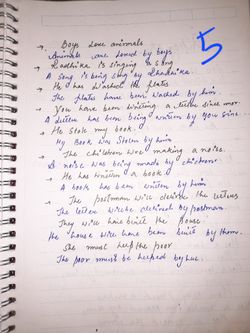 5
→ Boys love animals
Animals are loved by boys
→ Radhika is singing a song
A song is being sung by Radhika.
→ He has washed the plates
The plates have been washed by him.
→ You have been writing a letter since mor.
A letter has been being written by you since.
→ He stole my book.
My Book was stolen by him
→ The children were making a noise.
A noise was being made by children
→ He has written a book.
A book has been written by him
→ The postman will deliver the letters
The letter will be delivered by postman.
They will have built the house.
The house will have been built by them.
She must help the poor
The poor must be helped by her.